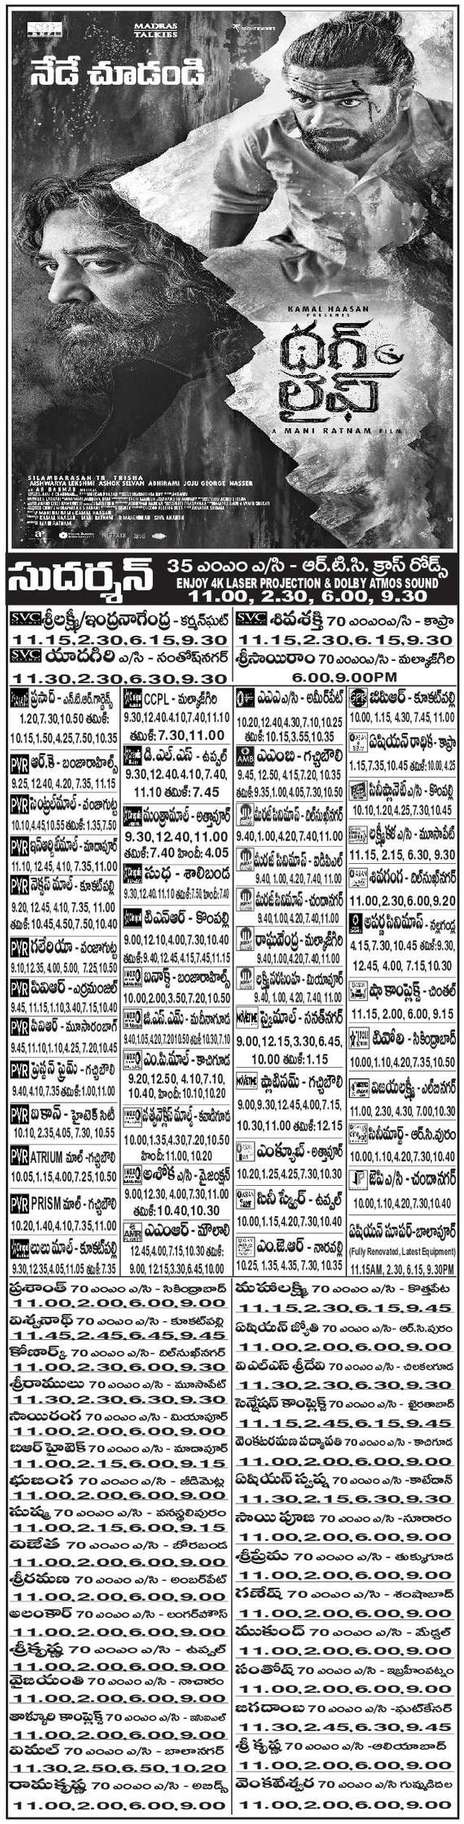 MADRAS
TALKIES
నేడే చూడండి
KAMAL HAASAN
PRESENTS
థగ్
లైఫ్
A MANI RATNAM FILM
SILAMBARASAN TR TRISHA
AISHWARYA LEKSHMI ASHOK SELVAN ABHIRAMI JOJU GEORGE NASSER
సుదర్శన్ 35 ఎంఎం ఎ/సి - ఆర్.టి.సి. క్రాస్ రోడ్స్
ENJOY 4K LASER PROJECTION & DOLBY ATMOS SOUND
11.00, 2.30, 6.00, 9.30
SVC శ్రీలక్ష్మీ/ఇంద్రనాగేంద్ర - కర్మన్‌ఘాట్
11.15,2.30,6.15,9.30
SVC యాదగిరి ఎ/సి - సంతోష్‌నగర్
11.30,2.30,6.30,9.30
SVC శివశక్తి 70 ఎంఎంఎ/సి - కాప్రా
11.15,2.30,6.15,9.30
శ్రీసాయిరాం 70ఎంఎంఎ/సి - మల్కాజ్‌గిరి
6.00,9.00PM
ప్రసాద్ - ఎన్.టి.ఆర్.గార్డెన్స్
1.20,7.30,10.50 తమిళ్:
10.15,1.50,4.25,7.50,10.35
PVR ఆర్.కె - బంజారాహిల్స్
9.25, 12.40, 4.20, 7.35, 11.15
PVR సెంట్రల్‌మాల్ - పంజాగుట్ట
10.10,4.45,10.55 తమిళ్:1.35,7.50
PVR ఇన్‌ఆర్బిట్‌మాల్ - మాదాపూర్
11.10, 12.45, 4.10, 7.35, 11.00
PVR నెక్సస్ మాల్ - కూకట్‌పల్లి
9.20, 12.45, 4.10, 7.35, 11.00
తమిళ్: 10.45,4.50,7.50,10.40
PVR గలేరియా - పంజాగుట్ట
9.10,12.35, 4.00, 5.00, 7.25,10.50
PVR పివిఆర్ - ఎర్రమంజిల్
9.45,11.15,1.10,3.40,7.15,10.40
PVR పివిఆర్ - మూసారంబాగ్
9.45,11.10,1.10,4.25, 7.20,10.45
PVR ప్రిస్టన్ ప్రైమ్ - గచ్చిబౌలి
9.40,4.10,7.35, 1.00,11.00
PVR ఐకాన్ - హైటెక్ సిటీ
10.10, 2.35, 4.05, 7.30, 10.55
PVR ATRIUM మాల్ - గచ్చిబౌలి
10.05,1.15,4.00,7.25,10.50
PVR PRISM మాల్ - గచ్చిబౌలి
10.20,1.40,4.10,7.35,11.00
లులుమాల్ - కూకట్‌పల్లి
9.30,12.35,4.05,11.05 తమిళ్: 7.35
CCPL - మల్కాజ్‌గిరి
9.30,12.40.4.10,7.40,11.10
తమిళ్: 7.30,11.00
డి.ఎల్.ఎస్ - ఉప్పల్
9.30,12.40.4.10, 7.40,
11.10 తమిళ్: 7.45
మంత్రామాల్ - అత్తాపూర్
9.30,12.40, 11.00
తమిళ్:7.40 హిందీ: 4.05
సుధ - శాలిబండ
టిఎన్ఆర్ - కొంపల్లి
9.00,12.10,4.00, 7.30,10.40
తమిళ్: 9.40,12.45,4.15,7.45,11.15
ఐనాక్స్ - బంజారాహిల్స్
10.00,2.00, 3.50, 7.20, 10.50
జి.ఎస్.ఎమ్ - మదీనాగూడ
ఎం.పి.మాల్ - కాచిగూడ
9.20, 12.50, 4.10,7.10,
10.40, హిందీ: 10.10,10.20
10.00,1.35,4.30, 7.20, 10.50
హిందీ: 11.00, 10.20
అశోక ఎ/సి - వైజంక్షన్
9.00,12.30, 4.00, 7.30,11.00
తమిళ్: 10.40,10.30
AMR ఎఎంఆర్ - మౌలాలి
12.45,4.00,7.15,10.30 తమిళ్:
9.00, 12.15,3.30,6.45, 10.00
ఎఎఎఎ/సి - అమీర్‌పేట్
10.20, 12.40, 4.30, 7.10, 10.25
తమిళ్: 10.15,3.55,10.35
AMB ఎఎంబి - గచ్చిబౌలి
9.45, 12.50, 4.15,7.20, 10.35
తమిళ్:9.35,1.00,4.05,7.30,10.50
మిరాజ్ సినిమాస్ - దిల్‌సుఖ్‌నగర్
9.40,1.00,4.20, 7.40, 11.00
మిరాజ్ సినిమాస్ - ఐడిపిఎల్
9.40,1.00,4.20, 7.40, 11.00
మిరాజ్ సినిమాస్ - చందానగర్
9.40,1.00,4.20, 7.40, 11.00
రాఘవేంద్ర - మల్కాజ్‌గిరి
9.40,1.00,4.20,7.40,11.00
లక్ష్మీనరసింహ - మియాపూర్
9.40, 1.00, 4.20, 7.40, 11.00
MOVIETIME ప్రైమ్‌మాల్ - సనత్‌నగర్
9.00,12.15,3.30,6.45,
10.00 తమిళ్: 1.15
MOVIETIME ప్లాటినమ్ - గచ్చిబౌలి
9.00,9.30,12.45,4.00,7.15,
10.30,11.00 తమిళ్: 12.15
ఎంక్యూబ్ - అత్తాపూర్
10.20,1.25,4.25,7.30,10.30
సినీ స్క్వేర్ - ఉప్పల్
10.00,1.15,4.20, 7.30, 10.40
ఎం.జె.ఆర్ - నారపల్లి
10.25, 1.35, 4.35, 7.30, 10.35
జిపిఆర్ - కూకట్‌పల్లి
10.00,1.15, 4.30, 7.45, 11.00
ఏషియన్ రాధిక - కాప్రా
1.15,7.35,10.45 తమిళ్: 10.00, 4.25
సినీప్లానెట్ ఎ/సి - కొంపల్లి
10.10,1.20,4.25,7.30,10.45
లక్ష్మీకళ ఎ/సి - మూసాపేట్
11.15, 2.15, 6.30, 9.30
శివగంగ - దిల్‌సుఖ్‌నగర్
11.00,2.30,6.20, 9.20
అపర్ణ సినిమాస్ - నల్లగండ్ల
4.15,7.30,10.45 తమిళ్:9.30,
12.45, 4.00, 7.15,10.30
షా కాంప్లెక్స్ - చింతల్
11.15, 2.00, 6.00, 9.15
టివోలి - సికింద్రాబాద్
10.00,1.10,4.20,7.35,10.50
విజయలక్ష్మీ - ఎల్‌బినగర్
11.00, 2.30, 4.30, 7.00, 10.30
సినీమార్ట్ - ఆర్.సి.పురం
10.00, 1.10, 4.20,7.30,10.40
జెపి ఎ/సి - చందానగర్
10.00,1.10,4.20,7.30,10.40
ఏషియన్ సూపర్-బాలాపూర్
(Fully Renovated, Latest Equipment)
11.15AM, 2.30, 6.15, 9.30PM
ప్రశాంత్ 70 ఎంఎం ఎ/సి - సికింద్రాబాద్
11.00,2.00,6.00,9.00
విశ్వనాథ్ 70 ఎంఎం ఎ/సి - కూకట్‌పల్లి
11.45,2.45,6.45,9.45
కోణార్క్ 70 ఎంఎం ఎ/సి - దిల్‌సుఖ్‌నగర్
11.00,2.30,6.00,9.30
శ్రీరాములు 70 ఎంఎం ఎ/సి - మూసాపేట్
11.30,2.30,6.30,9.30
సాయిరంగ 70 ఎంఎం ఎ/సి - మియాపూర్
11.00,2.00,6.00,9.00
బిఆర్ హైటెక్ 70 ఎంఎం ఎ/సి - మాదాపూర్
11.00,2.15,6.00,9.15
భుజంగ 70 ఎంఎం ఎ/సి - జీడిమెట్ల
11.00,2.00,6.00,9.00
సుష్మ 70 ఎంఎం ఎ/సి - వనస్థలిపురం
11.00,2.15,6.00,9.15
విజేత 70 ఎంఎం ఎ/సి - బోరబండ
11.00,2.00,6.00,9.00
శ్రీరమణ 70 ఎంఎం ఎ/సి - అంబర్‌పేట్
11.00,2.00,6.00,9.00
అలంకార్ 70 ఎంఎం ఎ/సి - లంగర్‌హౌస్
11.00,2.00,6.00,9.00
శ్రీకృష్ణ 70 ఎంఎం ఎ/సి - ఉప్పల్
11.00,2.00,6.00,9.00
వైజయంతి 70 ఎంఎం ఎ/సి - నాచారం
11.00,2.00,6.00,9.00
తాక్యూరి కాంప్లెక్స్ 70 ఎంఎం ఎ/సి - ఇసిఐఎల్
11.00,2.00,6.00,9.00
విమల్ 70 ఎంఎం ఎ/సి - బాలానగర్
11.30,2.50,6.50,10.20
రామకృష్ణ 70 ఎంఎం ఎ/సి - అబిడ్స్
11.00,2.00,6.00,9.00
మహాలక్ష్మి 70 ఎంఎం ఎ/సి - కొత్తపేట
11.15,2.30,6.15,9.45
ఏషియన్ జ్యోతి 70 ఎంఎం ఎ/సి- ఆర్.సి.పురం
11.00,2.00,6.00,9.00
వి.ఎల్.ఎస్ శ్రీదేవి 70 ఎంఎం ఎ/సి - చిలకలగూడ
11.30,2.30,6.30,9.30
సెన్సేషన్ కాంప్లెక్స్ 70 ఎంఎం ఎ/సి - ఖైరతాబాద్
11.15,2.45,6.15,9.45
వెంకటరమణ పద్మావతి 70 ఎంఎంఎ/సి - కాచిగూడ
11.00,2.00,6.00,9.00
ఏషియన్ స్వప్న 70 ఎంఎం ఎ/సి - కాటేదాన్
11.30,2.15,6.30,9.30
సాయి పూజ 70 ఎంఎం ఎ/సి -సూరారం
11.00,2.00,6.00,9.00
శ్రీప్రేమ 70 ఎంఎం ఎ/సి - తుక్కుగూడ
11.00,2.00,6.00,9.00
గణేష్ 70 ఎంఎం ఎ/సి - శంషాబాద్
11.00,2.00,6.00,9.00
ముకుంద్ 70 ఎంఎం ఎ/సి - మేడ్చల్
11.00,2.00,6.00,9.00
సంతోష్ 70 ఎంఎం ఎ/సి - ఇబ్రహీంపట్నం
11.00,2.00,6.00,9.00
జగదాంబ 70 ఎంఎం ఎ/సి -ఘట్‌కేసర్
11.30,2.45,6.30,9.45
శ్రీ కృష్ణ 70 ఎంఎం ఎ/సి -ఆలియాబాద్
11.00,2.00,6.00,9.00
వెంకటేశ్వర 70 ఎంఎం ఎ/సి గుమ్మడిదల
11.00,2.00,6.00,9.00